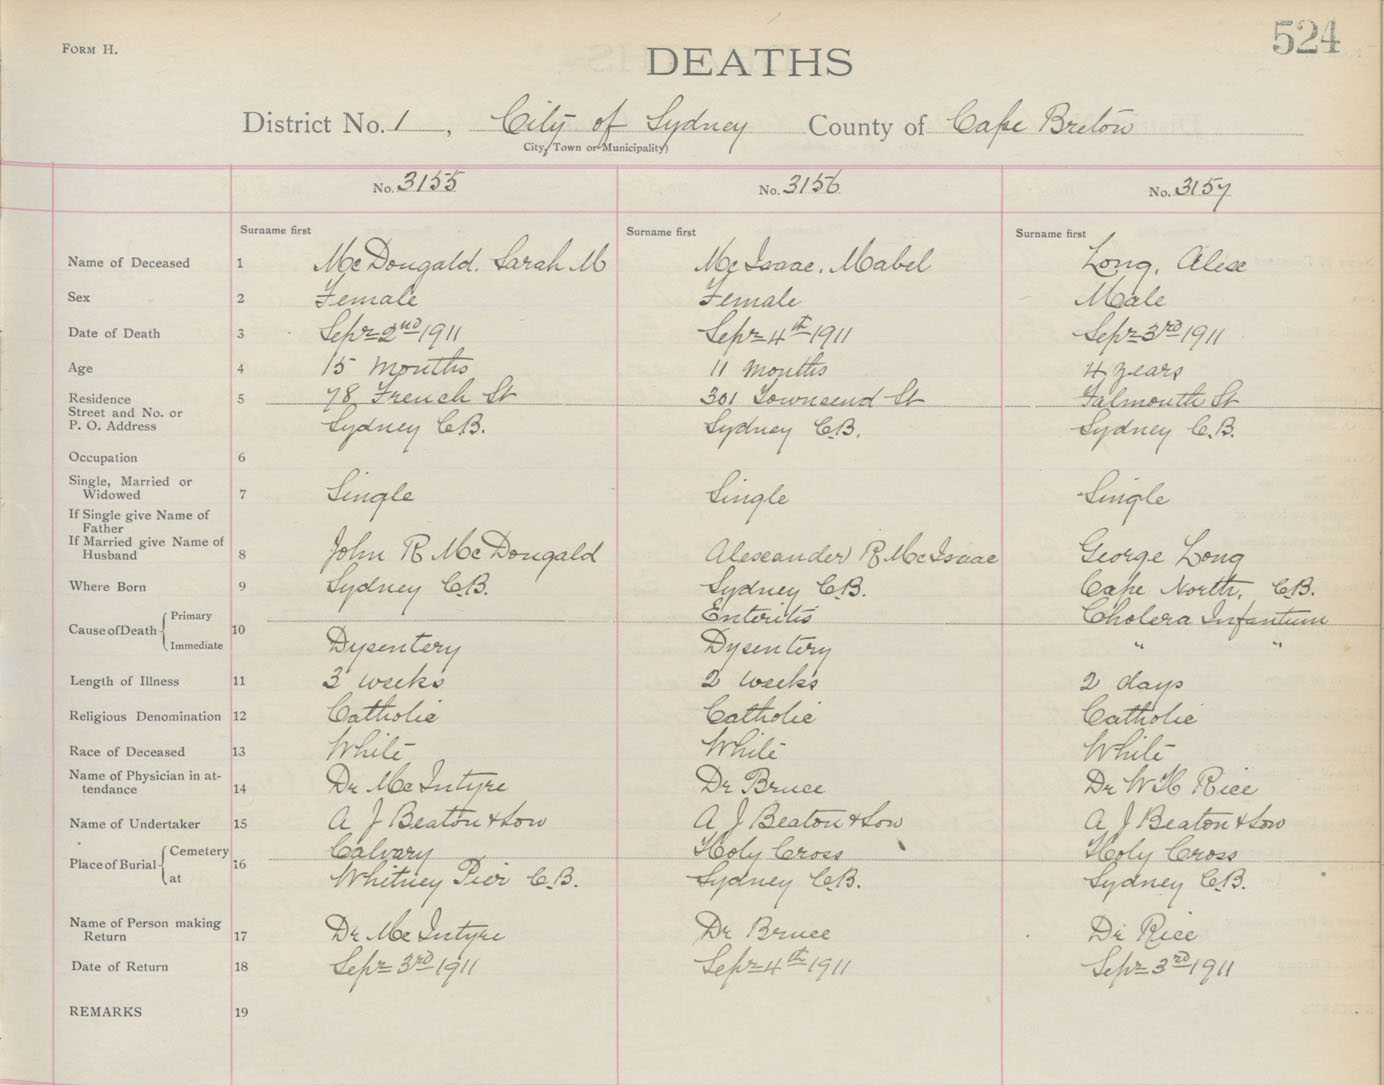 524
FORM H.
DEATHS
District No. 1, City of Sydney County of Cape Breton
City, Town or Municipality)
No. 3155 No. 3156 No. 3157
Surname first Surname first Surname first
Name of Deceased 1 McDougald. Sarah M McIsaac, Mabel Long, Alex
Sex 2 Female Female Male
Date of Death 3 Sept 2nd 1911 Sept 4th 1911 Sept 3rd 1911
Age 4 15 months 11 months 4 years
Residence 5 78 French St 301 Townsend St Falmouth St
Street and No. or
P. O. Address Sydney C.B. Sydney C.B. Sydney C.B.
Occupation 6
Single, Married or
Widowed 7 Single Single Single
If Single give Name of
Father
If Married give Name of
Husband 8 John R McDougald Alexander R McIsaac George Long
Where Born 9 Sydney C.B. Sydney C.B. Cape North, C.B.
Cause of Death Primary 10 Enteritis Cholera Infantum
Immediate Dysentery Dysentery " "
Length of Illness 11 3 weeks 2 weeks 2 days
Religious Denomination 12 Catholic Catholic Catholic
Race of Deceased 13 White White White
Name of Physician in at-
tendance 14 Dr McIntyre Dr Bruce Dr W H Rice
Name of Undertaker 15 A J Beaton & Son A J Beaton & Son A J Beaton & Son
Place of Burial Cemetery 16 Calvary Holy Cross Holy Cross
at Whitney Pier C.B. Sydney C.B. Sydney C.B.
Name of Person making
Return 17 Dr McIntyre Dr Bruce Dr Rice
Date of Return 18 Sept 3rd 1911 Sept 4th 1911 Sept 3rd 1911
REMARKS 19